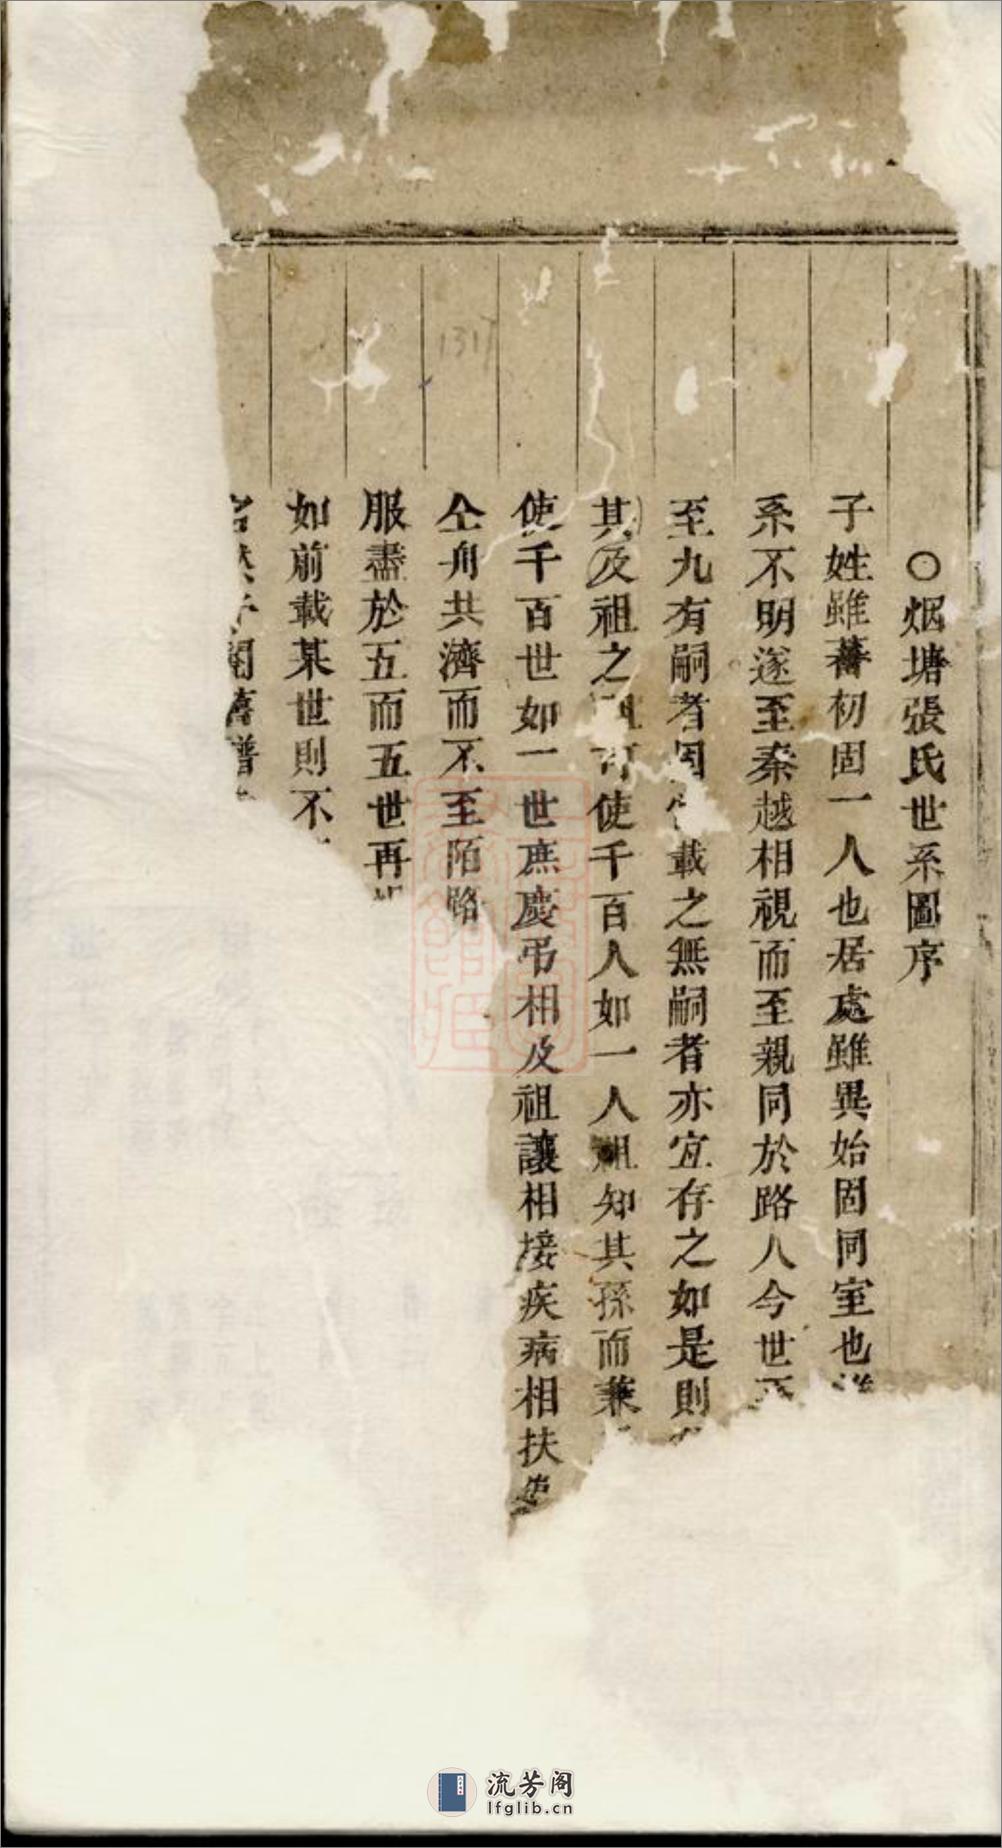 ○烟塘張氏世系圖序
子姓雖蕃初固一人也居處雖異始固同室也
系不明遂至秦越相視而至親同於路人今世
至九有嗣者固載之無嗣者亦宜存之如是則
其及祖之可使千百人如一人祖知其孫而兼
使千百世如一世庶慶弔相及祖讓相接疾病相扶
仝舟共濟而不至陌路
服盡於五而五世再
如前載某世則不
閱舊譜
1317
流芳阁
lfglib.cn